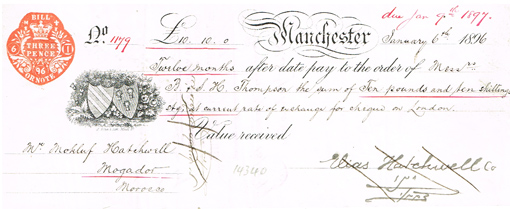 due Jan 9th 1897.
BILL
THREE
PENCE
OR NOTE
No 1179 £10.10.0 Manchester January 6th 1896
Twelve months after date pay to the order of Messrs
B. & J. H. Thompson the sum of Ten pounds and ten shillings
stg. at current rate of exchange for cheque on London.
Value received
Mr. Mchluf Hatchwell
Mogador
Morocco
14340
Elias Hatchwell Co